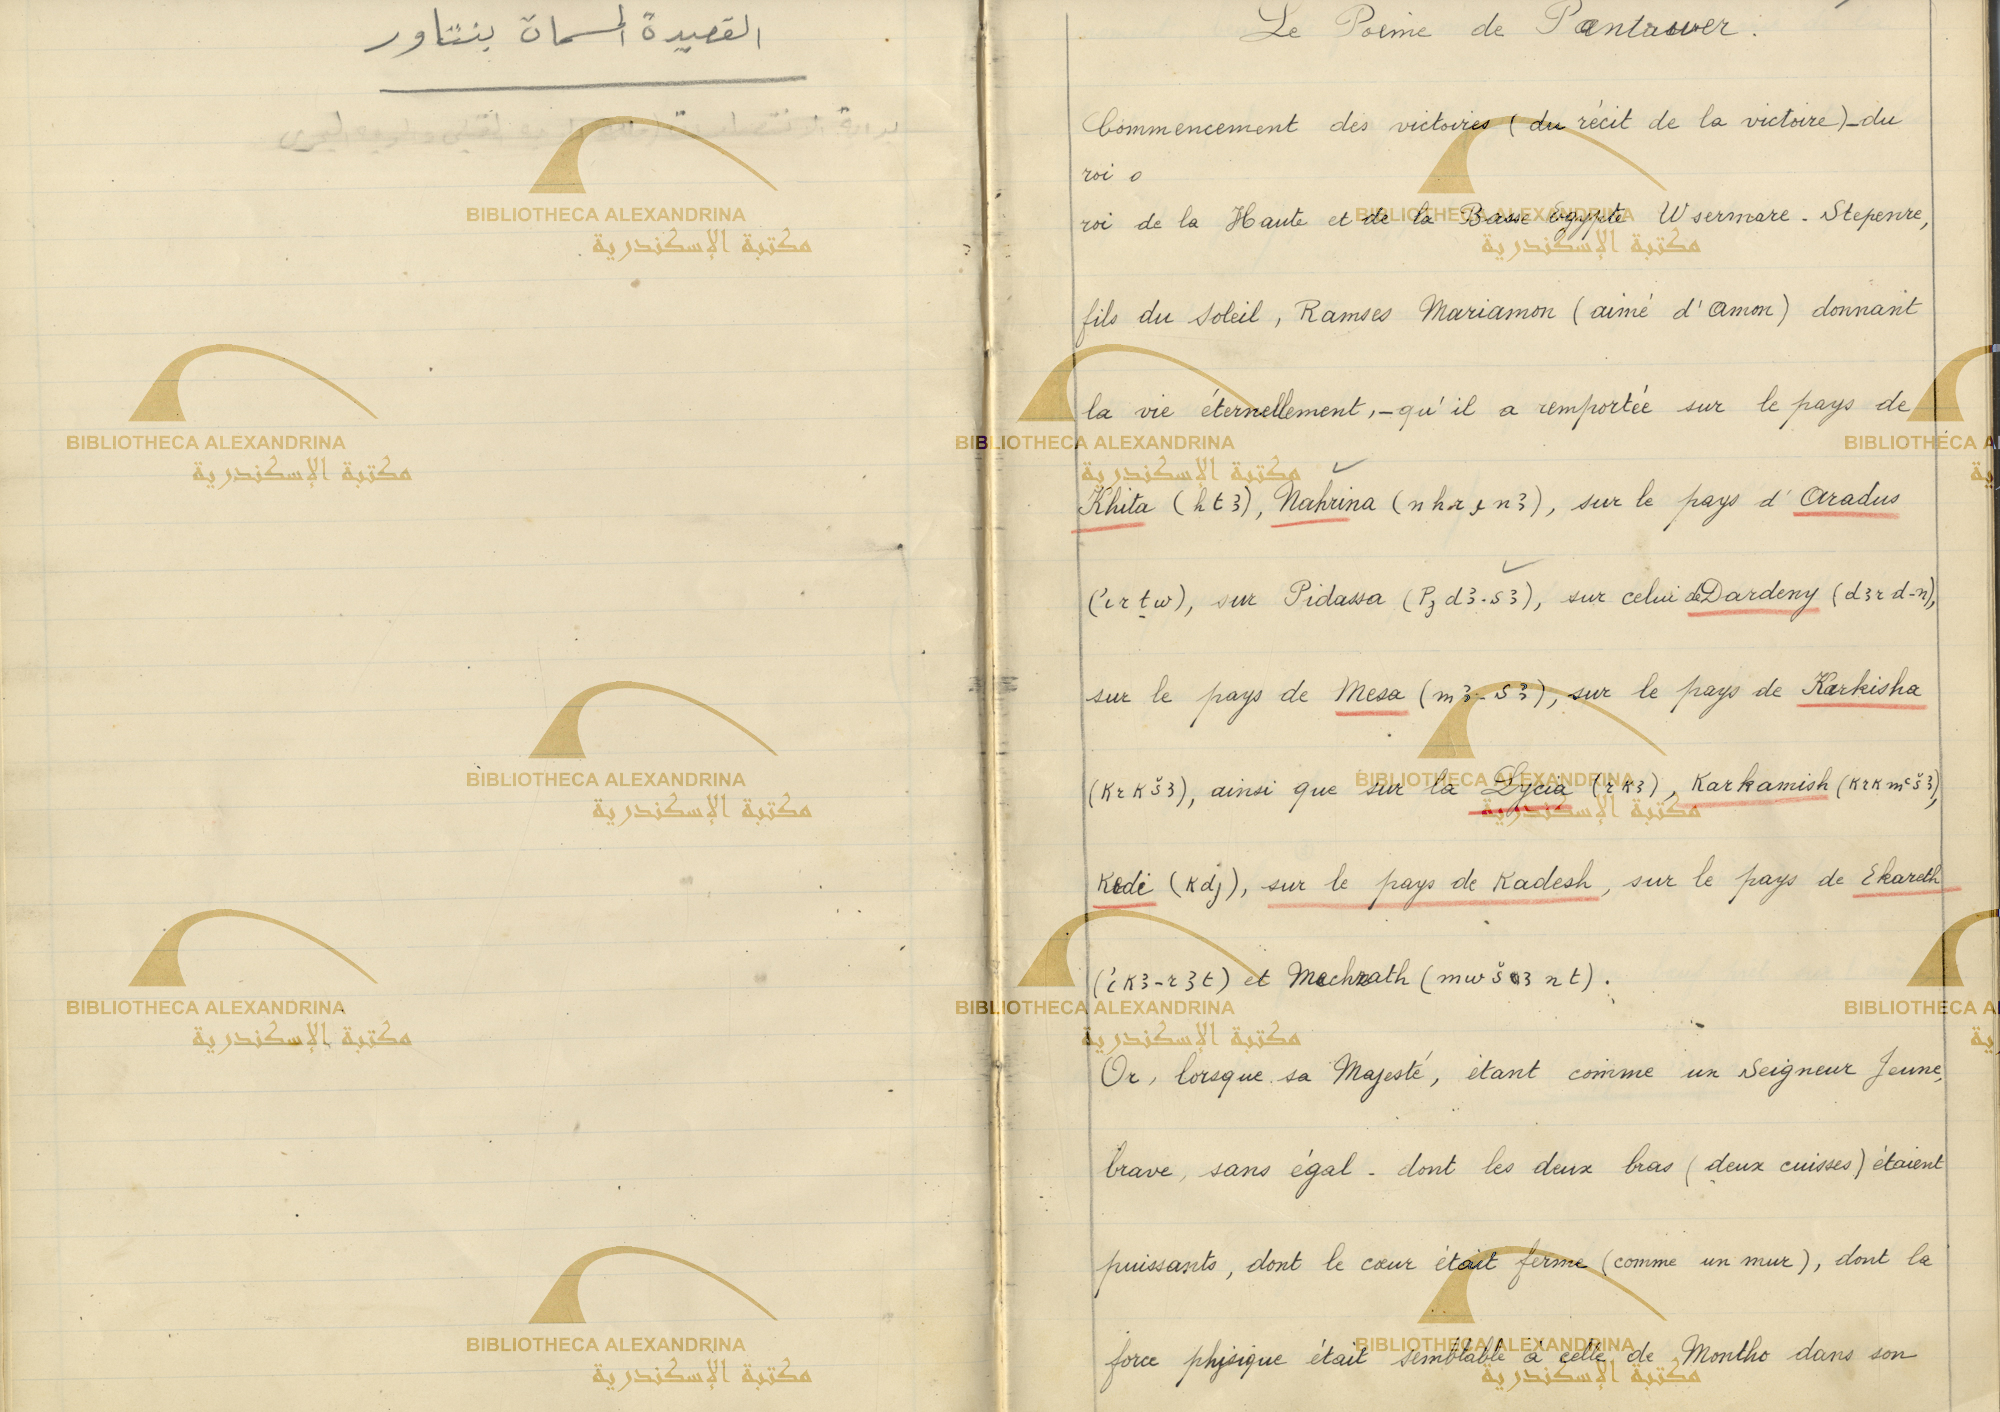 القصيدة المسماة بنتاور
Le Poème de Pentawer.
Commencement des victoires (du récit de la victoire)_du
roi o
roi de la Haute et de la Basse Egypte Wsermare - Stepenre,
fils du Soleil, Ramses Mariamon (aimé d'Amon) donnant
la vie éternellement,_qu'il a remportée sur le pays de
Khita (ht3), Nahrina (nhrịn3), sur le pays d'Aradus
(irṯw), sur Pidassa (P3d3-s3), sur celui de Dardeny (d3rd-n),
sur le pays de Mesa (m3-s3), sur le pays de Karkisha
(krkš3), ainsi que sur la Lycia (rk3), Karkamish (krkmcš3),
Kedi (kdj), sur le pays de Kadesh, sur le pays de Ekareth
(ik3-r3t) et Mechnath (mwš3nt).
Or, lorsque sa Majesté, étant comme un Seigneur Jeune,
brave, sans égal - dont les deux bras (deux cuisses) étaient
puissants, dont le cœur était ferme (comme un mur), dont la
force physique était semblable à celle de Montho dans son
BIBLIOTHECA ALEXANDRINA
مكتبة الإسكندرية